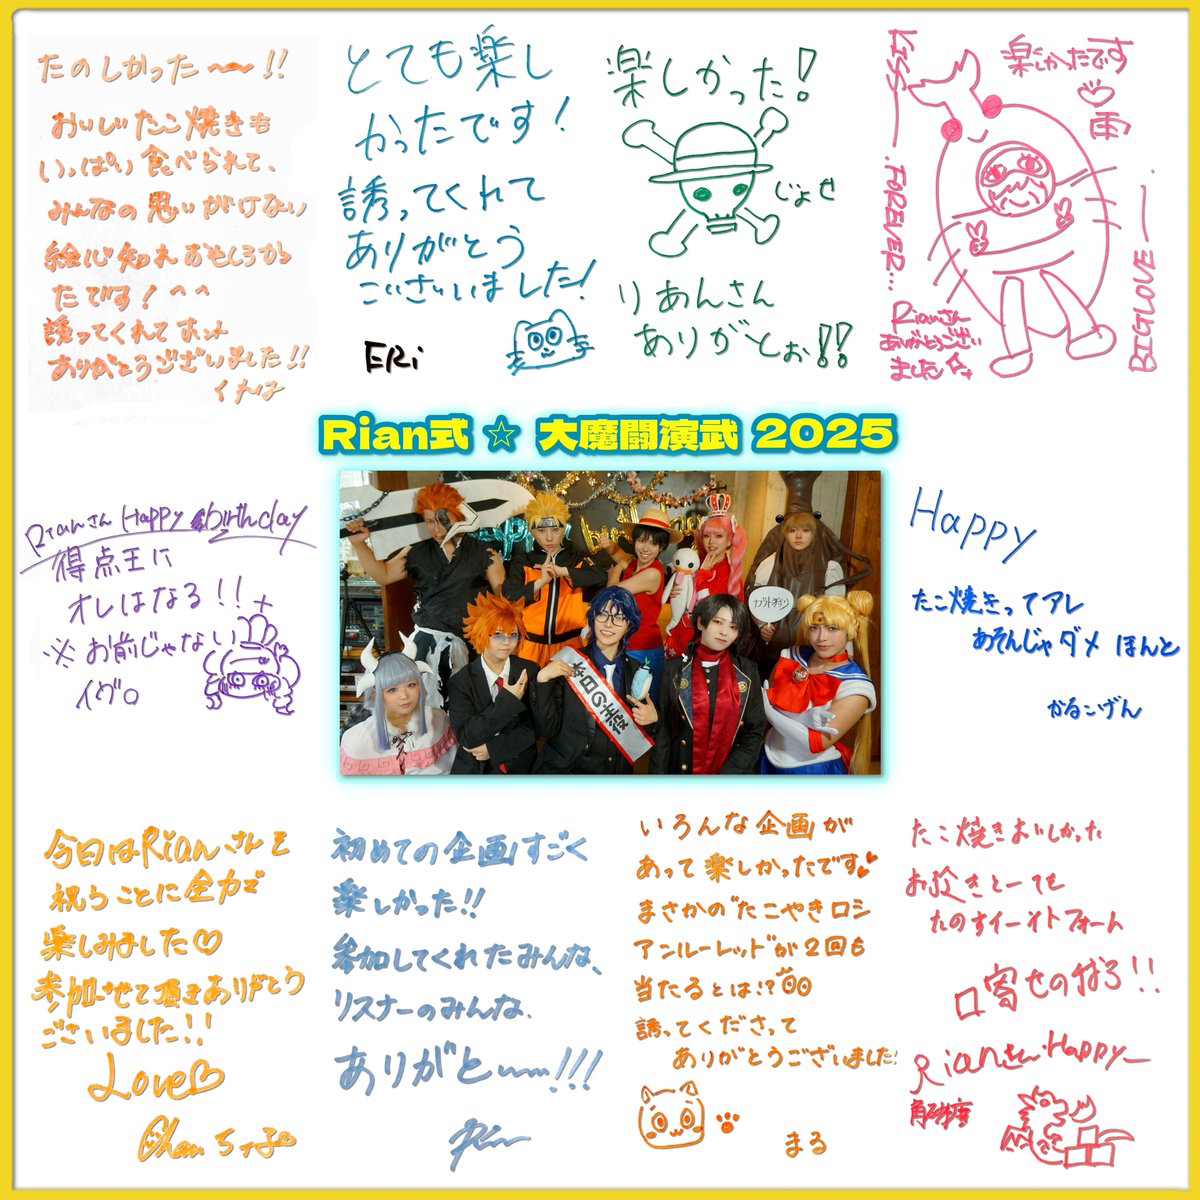 たのしかった〜〜!!
おいしいたこ焼きも
いっぱい食べられて、
みんなの思いがけない
絵心知れおもしろかっ
たです！^^
誘ってくれてホント
ありがとうございました!!
くれは
とても楽し
かったです！
誘ってくれて
ありがとう
ございました！
ERi
楽しかった！
じょせ
りあんさん
ありがとぉ!!
楽しかったです
♡雨
KISS
FOREVER...
BIGLOVE
Rianさん
ありがとうござい
ました☆
Rian式 ☆ 大魔闘演武 2025
Rianさん Happy birthday
得点王に
オレはなる!!
※お前じゃない
イグ。
本日の主役
Happy
たこ焼きってアレ
あそんじゃダメ ほんと
かるこげん
今日はRianさんを
祝うことに全力で
楽しみました♡
参加させて頂きありがとう
ございました!!
Love♡
初めての企画すごく
楽しかった!!
参加してくれたみんな、
リスナーのみんな、
ありがと〜〜!!!
Rian
いろんな企画が
あって楽しかったです
まさかのたこやきロシ
アンルーレットが2回も
当たるとは!?
誘ってくださって
ありがとうございました!
まる
たこ焼きおいしかった
お絵きとーても
たのすイーイトフォーム
口寄せの術ろ!!
Rianさん Happy
角砂糖